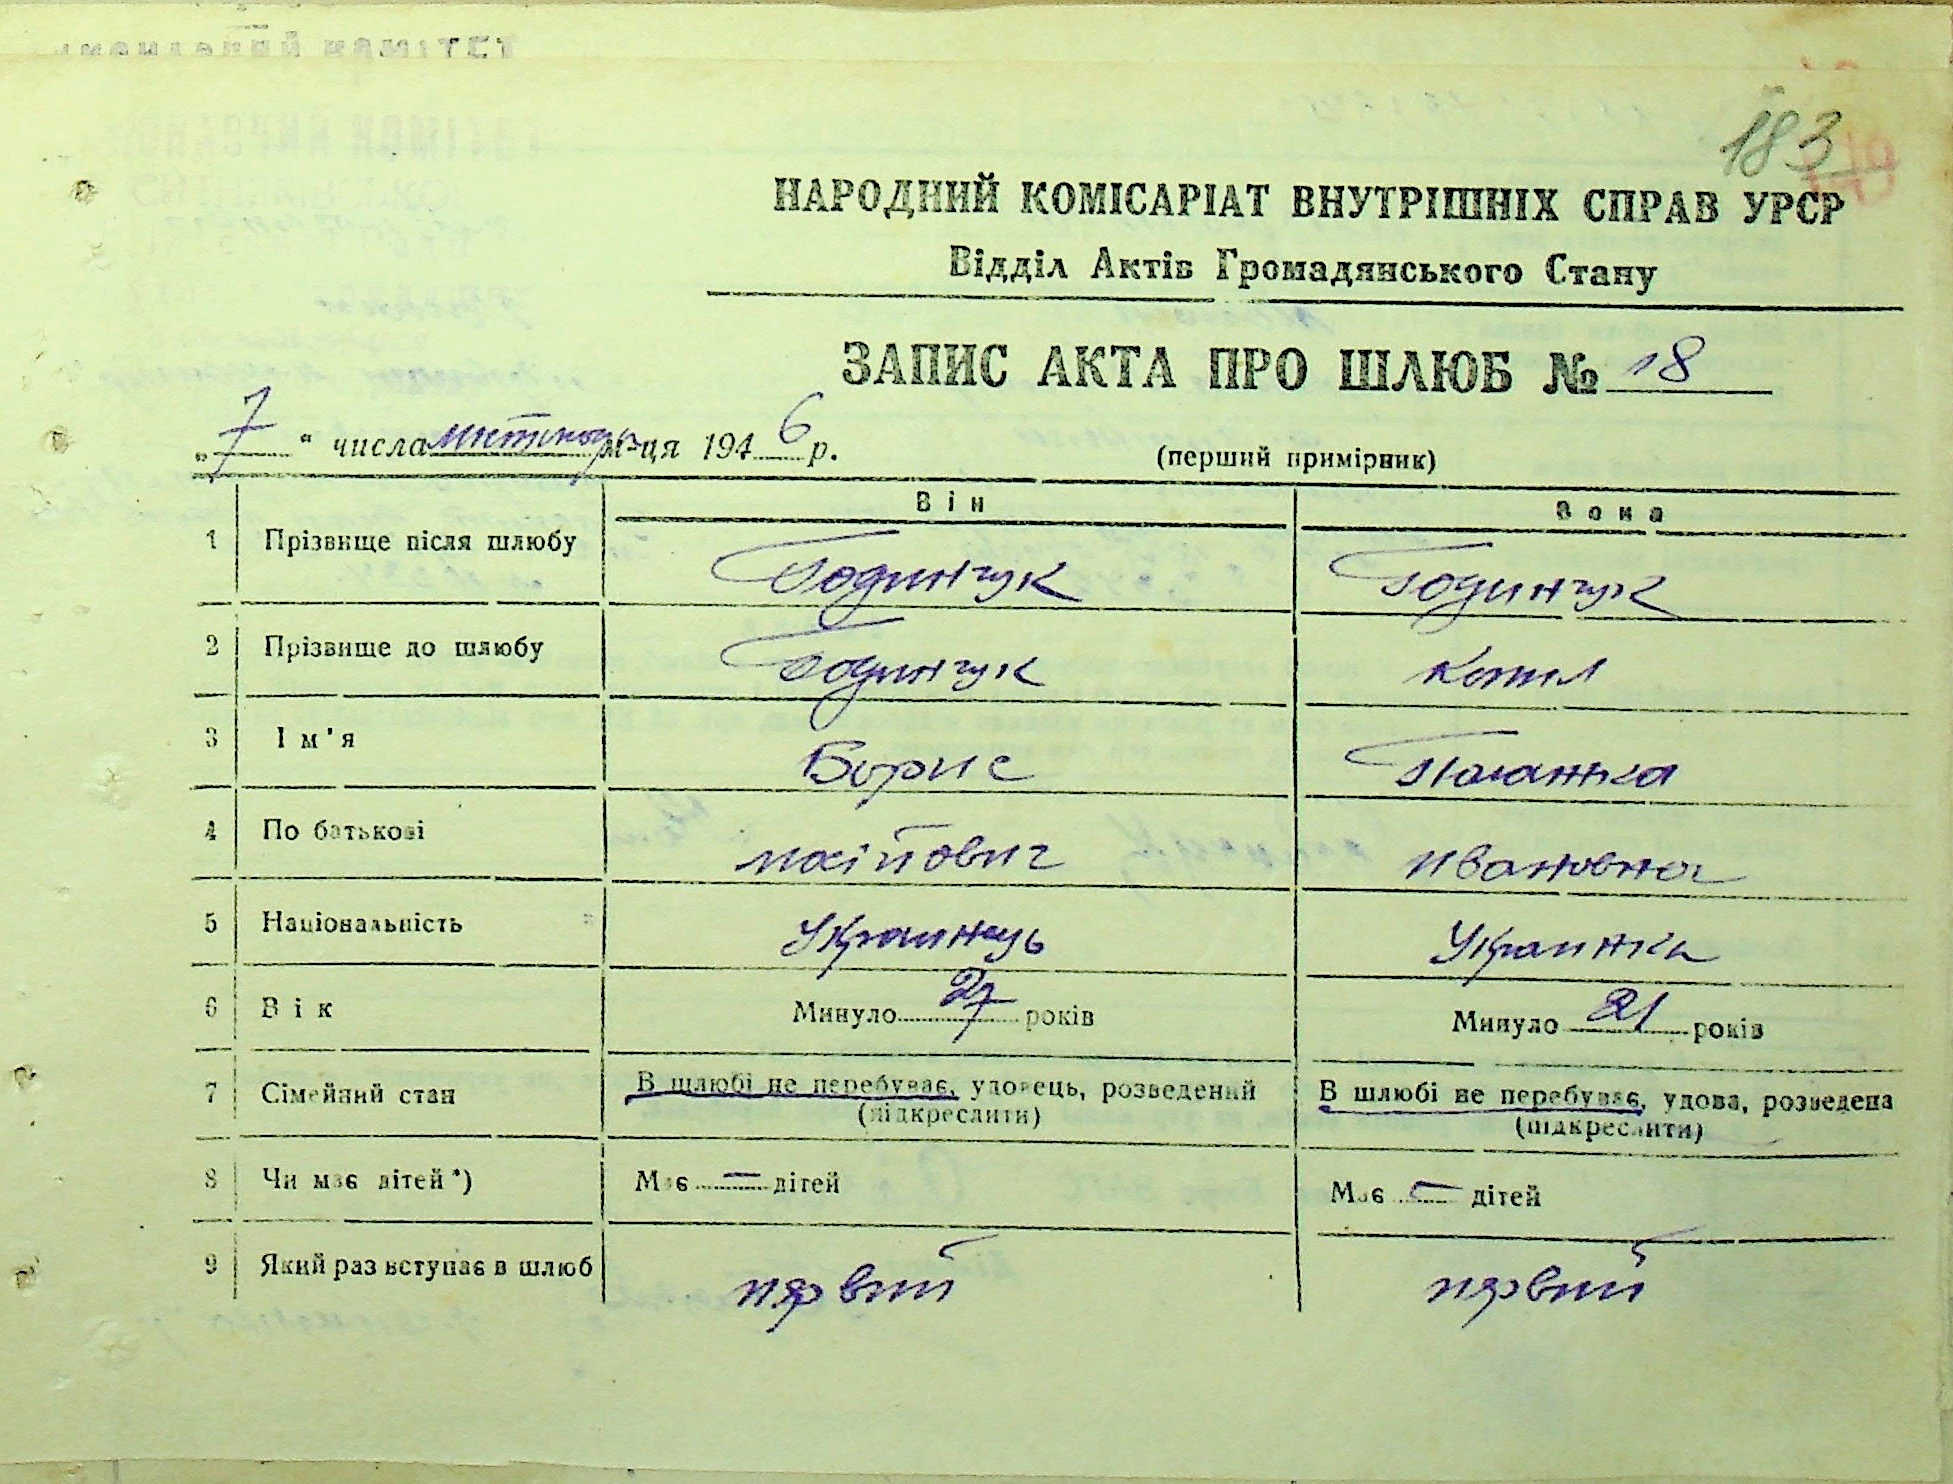 183
НАРОДНИЙ КОМІСАРІАТ ВНУТРІШНІХ СПРАВ УРСР
Відділ Актів Громадянського Стану
ЗАПИС АКТА ПРО ШЛЮБ № 18
„7“ числа м-ця 1946 р.
(перший примірник)
Він Вона
1 Прізвище після шлюбу Годинчук Годинчук
2 Прізвище до шлюбу Годинчук
3 Ім'я Борис Палажка
4 По батькові Ивановна
5 Національність Украинець Украинка
6 Вік Минуло 27 років Минуло 21 років
7 Сімейний стан В шлюбі не перебуває, удовець, розведений (підкреслити) В шлюбі не перебуває, удова, розведена (підкреслити)
8 Чи має дітей*) Має — дітей Має — дітей
9 Який раз вступає в шлюб первий первий